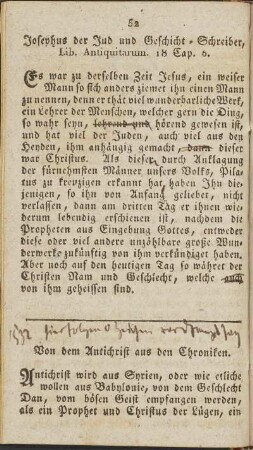 52
Josephus der Jud und Geschicht-Schreiber,
Lib. Antiquitarum. 18 Cap. 6.
Es war zu derselben Zeit Jesus, ein weiser
Mann so sich anders ziemet ihn einen Mann
zu nennen, denn er thät viel wunderbarliche Werk,
ein Lehrer der Menschen, welcher gern die Ding,
so wahr seyn, lehrend und hörend gewesen ist,
und hat viel der Juden, auch viel aus den
Heyden, ihm anhängig gemacht, dann dieser
war Christus. Als dieser durch Anklagung
der fürnehmsten Männer unsers Volks, Pila-
tus zu kreuzigen erkannt hat, haben Ihn die-
jenigen, so ihn von Anfang geliebet, nicht
verlassen, dann am dritten Tag er ihnen wie-
derum lebendig erschienen ist, nachdem die
Propheten aus Eingebung Gottes, entweder
diese oder viel andere unzählbare große Wun-
derwerke zukünftig von ihm verkündiget haben.
Aber noch auf den heutigen Tag so währet der
Christen Nam und Geschlecht, welche auch
von ihm geheissen sind.
Von dem Antichrist aus den Chroniken.
Antichrist wird aus Syrien, oder wie etliche
wollen aus Babylonie, von dem Geschlecht
Dan, vom bösen Geist empfangen werden,
als ein Prophet und Christus der Lügen, ein